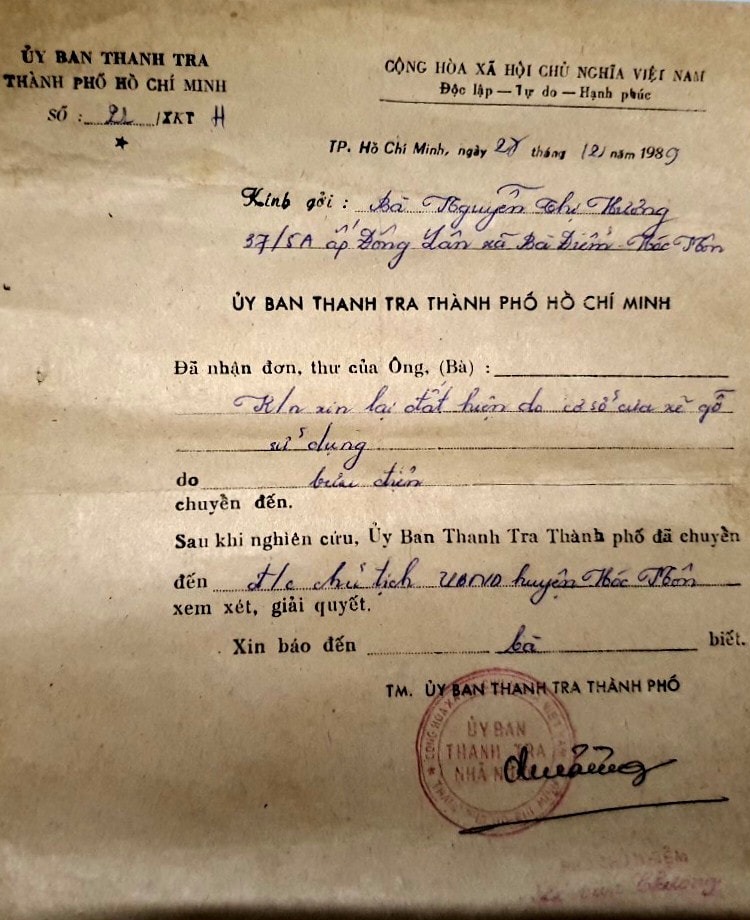 ỦY BAN THANH TRA
THÀNH PHỐ HỒ CHÍ MINH
SỐ : 22 /XKT H
CỘNG HÒA XÃ HỘI CHỦ NGHĨA VIỆT NAM
Độc lập — Tự do — Hạnh phúc
TP. Hồ Chí Minh, ngày tháng 12 năm 1989
Kính gởi : Bà Nguyễn Thị Hương
37/5A ấp Đông Lân xã Bà Điểm - Hóc Môn
ỦY BAN THANH TRA THÀNH PHỐ HỒ CHÍ MINH
Đã nhận đơn, thư của Ông, (Bà) :
K/n xin lại đất hiện do cơ sở cưa xẻ gỗ
sử dụng
do bưu điện
chuyển đến.
Sau khi nghiên cứu, Ủy Ban Thanh Tra Thành phố đã chuyển
đến đ/c chủ tịch UBND huyện Hóc Môn
xem xét, giải quyết.
Xin báo đến bà biết.
TM. ỦY BAN THANH TRA THÀNH PHỐ
ỦY BAN
THANH TRA
NHÀ